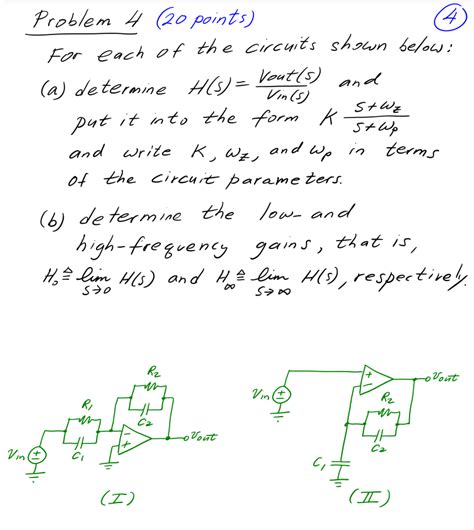 Problem 4 (20 points) 4
For each of the circuits shown below:
(a) determine H(s) = Vout(s)/Vin(s) and
put it into the form K (s+ωz)/(s+ωp)
and write K, ωz, and ωp in terms
of the circuit parameters.
(b) determine the low- and
high-frequency gains, that is,
H₀ ≜ lim s→0 H(s) and H∞ ≜ lim s→∞ H(s), respectively.
R2
R1
C2
Vin
C1
Vout
(I)
Vin
Vout
R2
C2
C1
(II)